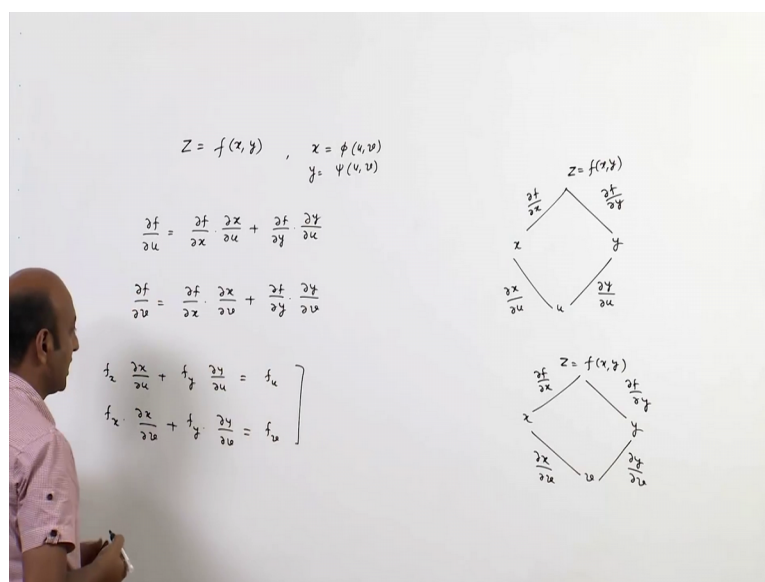 Z = f(x,y) , x = φ(u,v)
y = ψ(u,v)
∂f/∂u = ∂f/∂x · ∂x/∂u + ∂f/∂y · ∂y/∂u
∂f/∂v = ∂f/∂x · ∂x/∂v + ∂f/∂y · ∂y/∂v
f_x ∂x/∂u + f_y ∂y/∂u = f_u
f_x · ∂x/∂v + f_y · ∂y/∂v = f_v
Z = f(x,y)
∂f/∂x ∂f/∂y
x y
∂x/∂u ∂y/∂u
u
Z = f(x,y)
∂f/∂x ∂f/∂y
x y
∂x/∂v ∂y/∂v
v